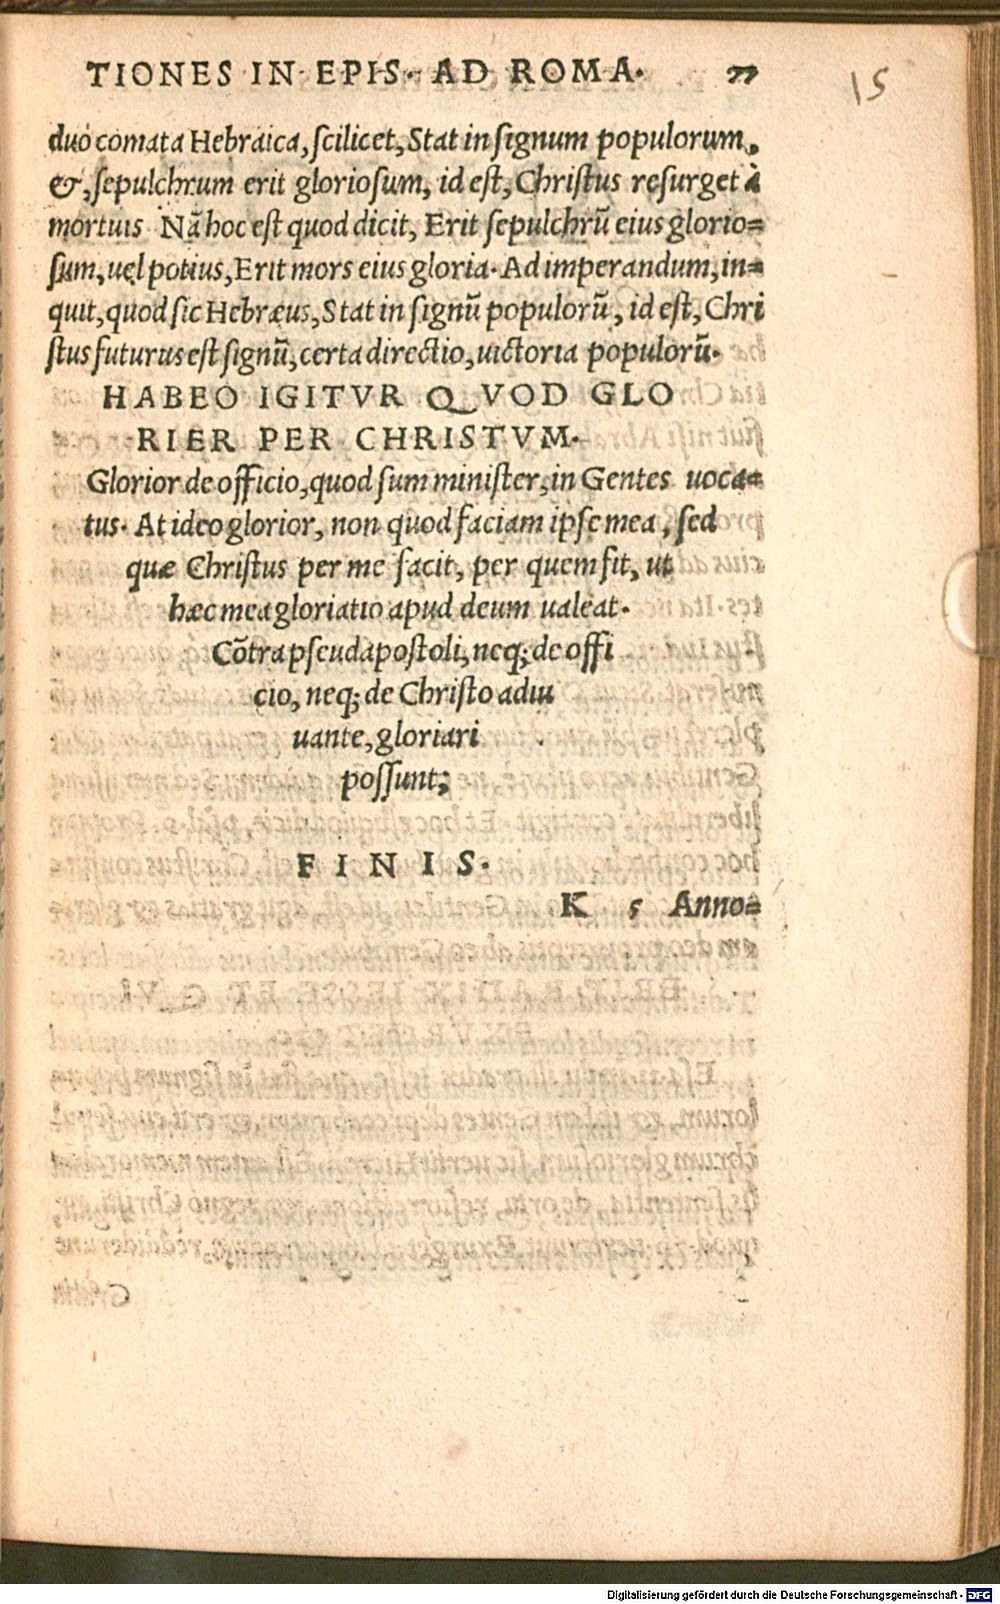 TIONES IN EPIS. AD ROMA. 77
15
duo comata Hebraica, ſcilicet, Stat in ſignum populorum,
&, ſepulchrum erit glorioſum, id eſt, Chriſtus reſurget à
mortuis Nã hoc eſt quod dicit, Erit ſepulchrũ eius glorio=
ſum, uel potius, Erit mors eius gloria. Ad imperandum, in=
quit, quod ſic Hebræus, Stat in ſignũ populorũ, id eſt, Chri
ſtus futurus eſt ſignũ, certa directio, uictoria populorũ.
HABEO IGITVR QVOD GLO
RIER PER CHRISTVM.
Glorior de officio, quod ſum miniſter, in Gentes uoca=
tus. At ideo glorior, non quod faciam ipſe mea, ſed
quæ Chriſtus per me facit, per quem fit, ut
hæc mea gloriatio apud deum ualeat.
Cõtra pſeudapoſtoli, neq; de offi
cio, neq; de Chriſto adiu
uante, gloriari
poſſunt;
FINIS.
K 5 Anno=
Digitalisierung gefördert durch die Deutsche Forschungsgemeinschaft - DFG